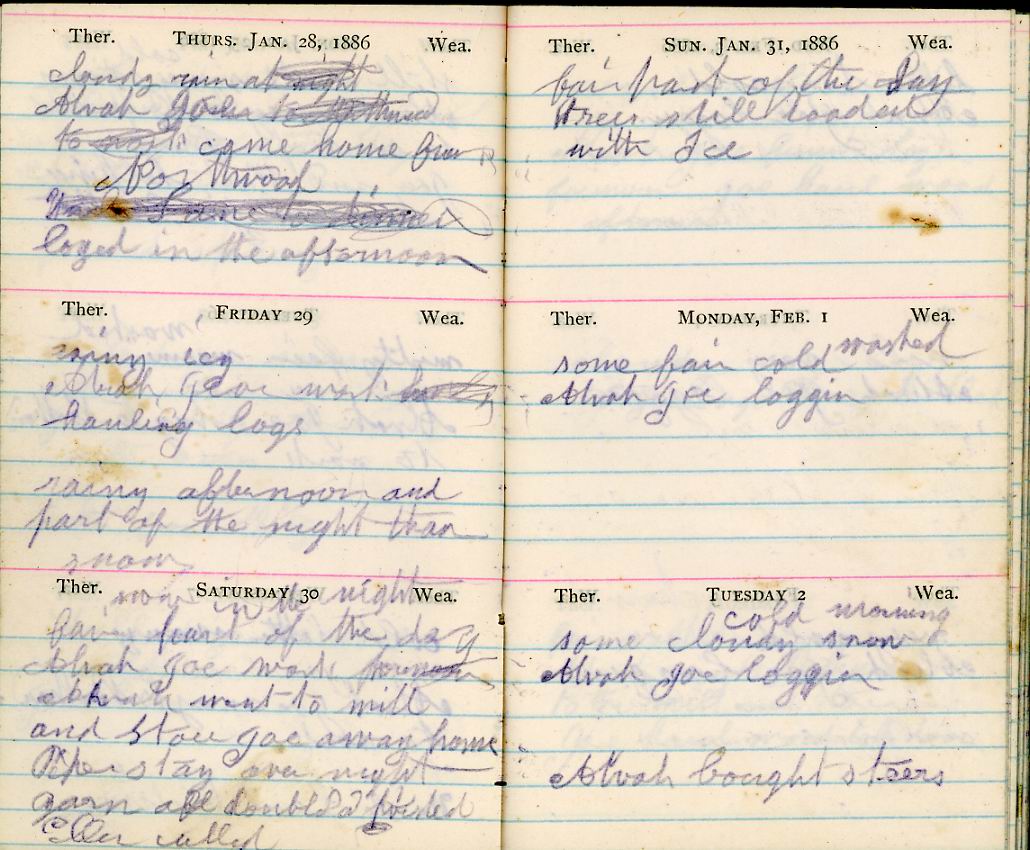 Ther. THURS. JAN. 28, 1886 Wea.
cloudy rain at night
Alvah goes to
to come home from
Northwood
to dinner
loged in the afternoon
Ther. FRIDAY 29 Wea.
rainy icy
Alvah, goe work
hauling logs
rainy afternoon and
part of the night than
snow
Ther. SATURDAY 30 Wea.
snow in the night
fair part of the day
Alvah goe work
went to mill
and goe away home
stay over night
yarn all doubled
called
Ther. SUN. JAN. 31, 1886 Wea.
fair part of the day
trees still loaded
with Ice
Ther. MONDAY, FEB. 1 Wea.
some fair cold washed
Alvah goe loggin
Ther. TUESDAY 2 Wea.
cold morning
some cloudy snow
Alvah goe loggin
Alvah bought steers